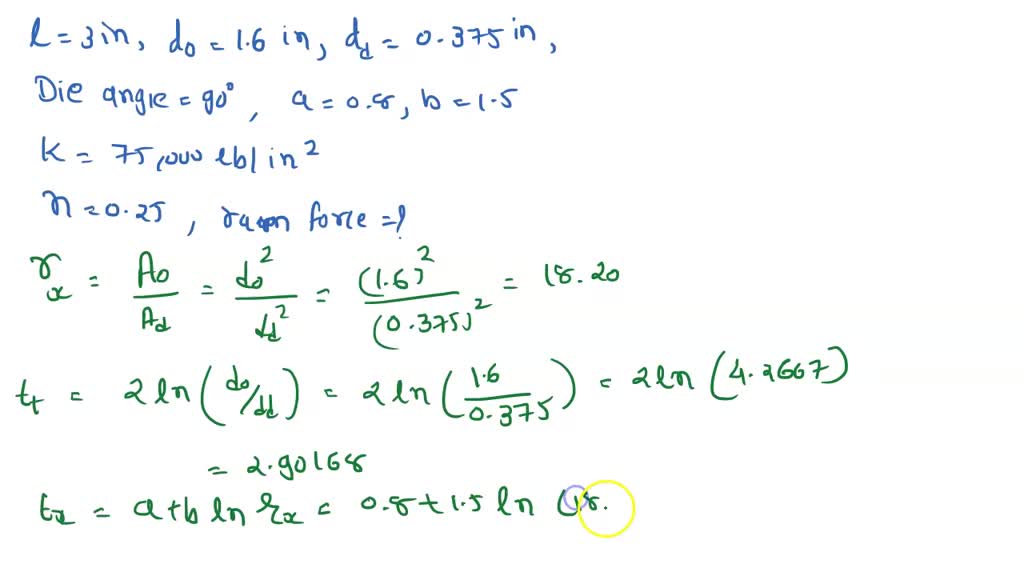 l = 3 in, do = 1.6 in, dd = 0.375 in,
Die angle = 90°, a = 0.8, b = 1.5
K = 75,000 lb/in²
n = 0.25, ram force = ?
rx = Ao/Ad = do²/dd² = (1.6)²/(0.375)² = 18.20
Et = 2 ln (do/dd) = 2 ln (1.6/0.375) = 2 ln (4.2667)
= 2.90168
Ex = a+b ln rx = 0.8+1.5 ln (18.